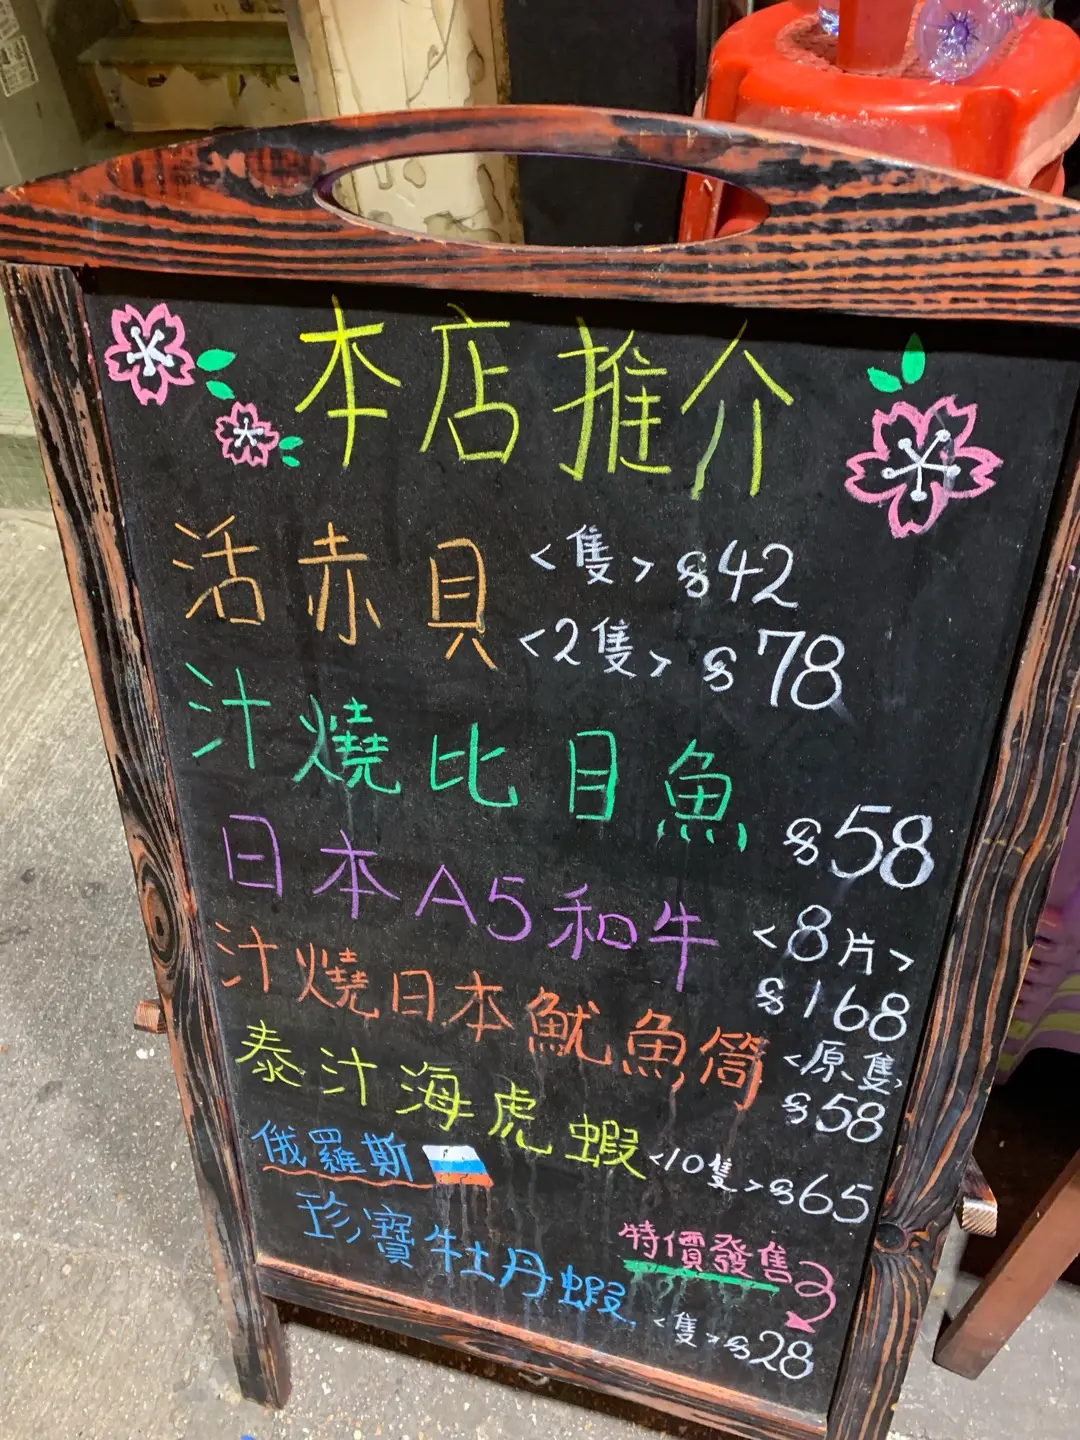 本店推介
活赤貝 <隻> $42
<2隻> $78
汁燒比目魚 $58
日本A5和牛 <8片>
$168
汁燒日本魷魚筒 <原隻>
$58
泰汁海虎蝦 <10隻> $65
俄羅斯
珍寶牡丹蝦 特價發售
<隻> $28